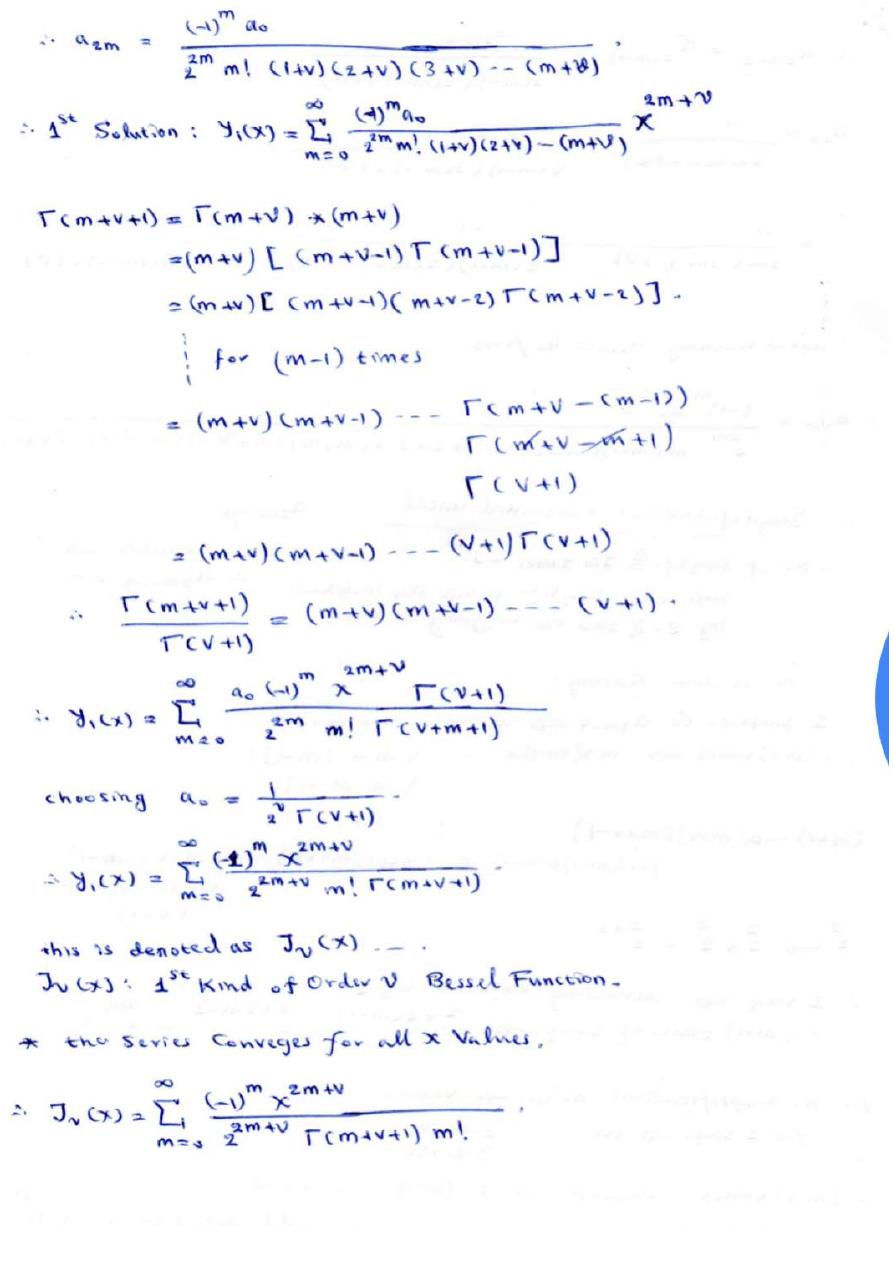 ∴ a₂ₘ = (-1)ᵐ a₀ / 2²ᵐ m! (1+ν)(2+ν)(3+ν) -- (m+ν) ,
∴ 1st Solution : y₁(x) = Σ_{m=0}^{∞} (-1)ᵐ a₀ / 2²ᵐ m! (1+ν)(2+ν) — (m+ν) x^{2m+ν}
Γ(m+ν+1) = Γ(m+ν) * (m+ν)
= (m+ν) [ (m+ν-1) Γ(m+ν-1) ]
= (m+ν) [ (m+ν-1)( m+ν-2) Γ(m+ν-2) ] .
for (m-1) times
= (m+ν)(m+ν-1) --- Γ(m+ν-(m-1))
Γ(m+ν-m+1)
Γ(ν+1)
= (m+ν)(m+ν-1) --- (ν+1) Γ(ν+1)
∴ Γ(m+ν+1) / Γ(ν+1) = (m+ν)(m+ν-1) --- (ν+1) .
∴ y₁(x) = Σ_{m=0}^{∞} a₀ (-1)ᵐ x^{2m+ν} Γ(ν+1) / 2²ᵐ m! Γ(ν+m+1)
choosing a₀ = 1 / 2^ν Γ(ν+1) .
∴ y₁(x) = Σ_{m=0}^{∞} (-1)ᵐ x^{2m+ν} / 2^{2m+ν} m! Γ(m+ν+1) .
this is denoted as J_ν(x) --- .
J_ν(x) : 1st Kind of Order ν Bessel Function .
* the Series Conveges for all x Values.
∴ J_ν(x) = Σ_{m=0}^{∞} (-1)ᵐ x^{2m+ν} / 2^{2m+ν} Γ(m+ν+1) m! ,